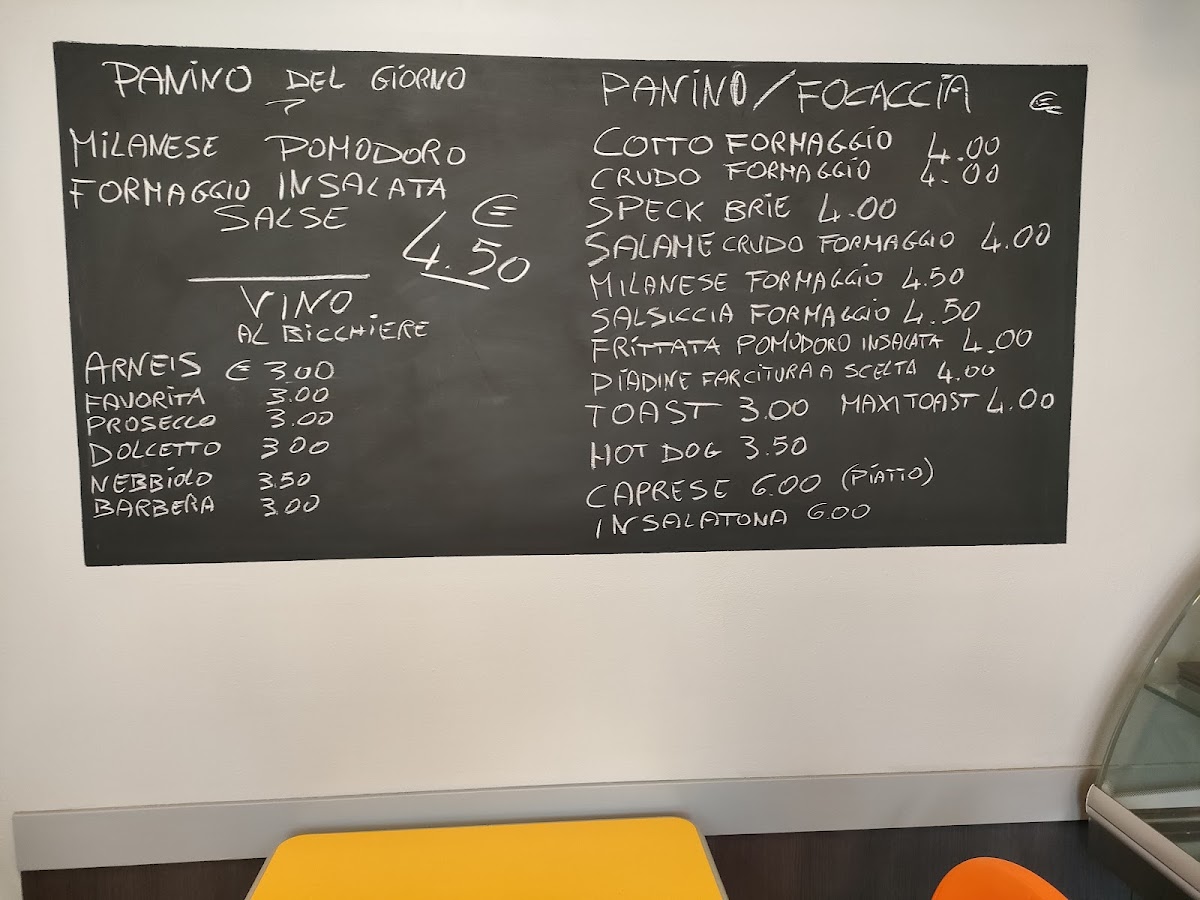 PANINO DEL GIORNO
MILANESE POMODORO
FORMAGGIO INSALATA
SALSE €
4.50
VINO
AL BICCHIERE
ARNEIS € 3.00
FAVORITA 3.00
PROSECCO 3.00
DOLCETTO 3.00
NEBBIOLO 3.50
BARBERA 3.00
PANINO/FOCACCIA €
COTTO FORMAGGIO 4.00
CRUDO FORMAGGIO 4.00
SPECK BRIE 4.00
SALAME CRUDO FORMAGGIO 4.00
MILANESE FORMAGGIO 4.50
SALSICCIA FORMAGGIO 4.50
FRITTATA POMODORO INSALATA 4.00
PIADINE FARCITURA A SCELTA 4.00
TOAST 3.00 MAXITOAST 4.00
HOT DOG 3.50
CAPRESE 6.00 (PIATTO)
INSALATONA 6.00